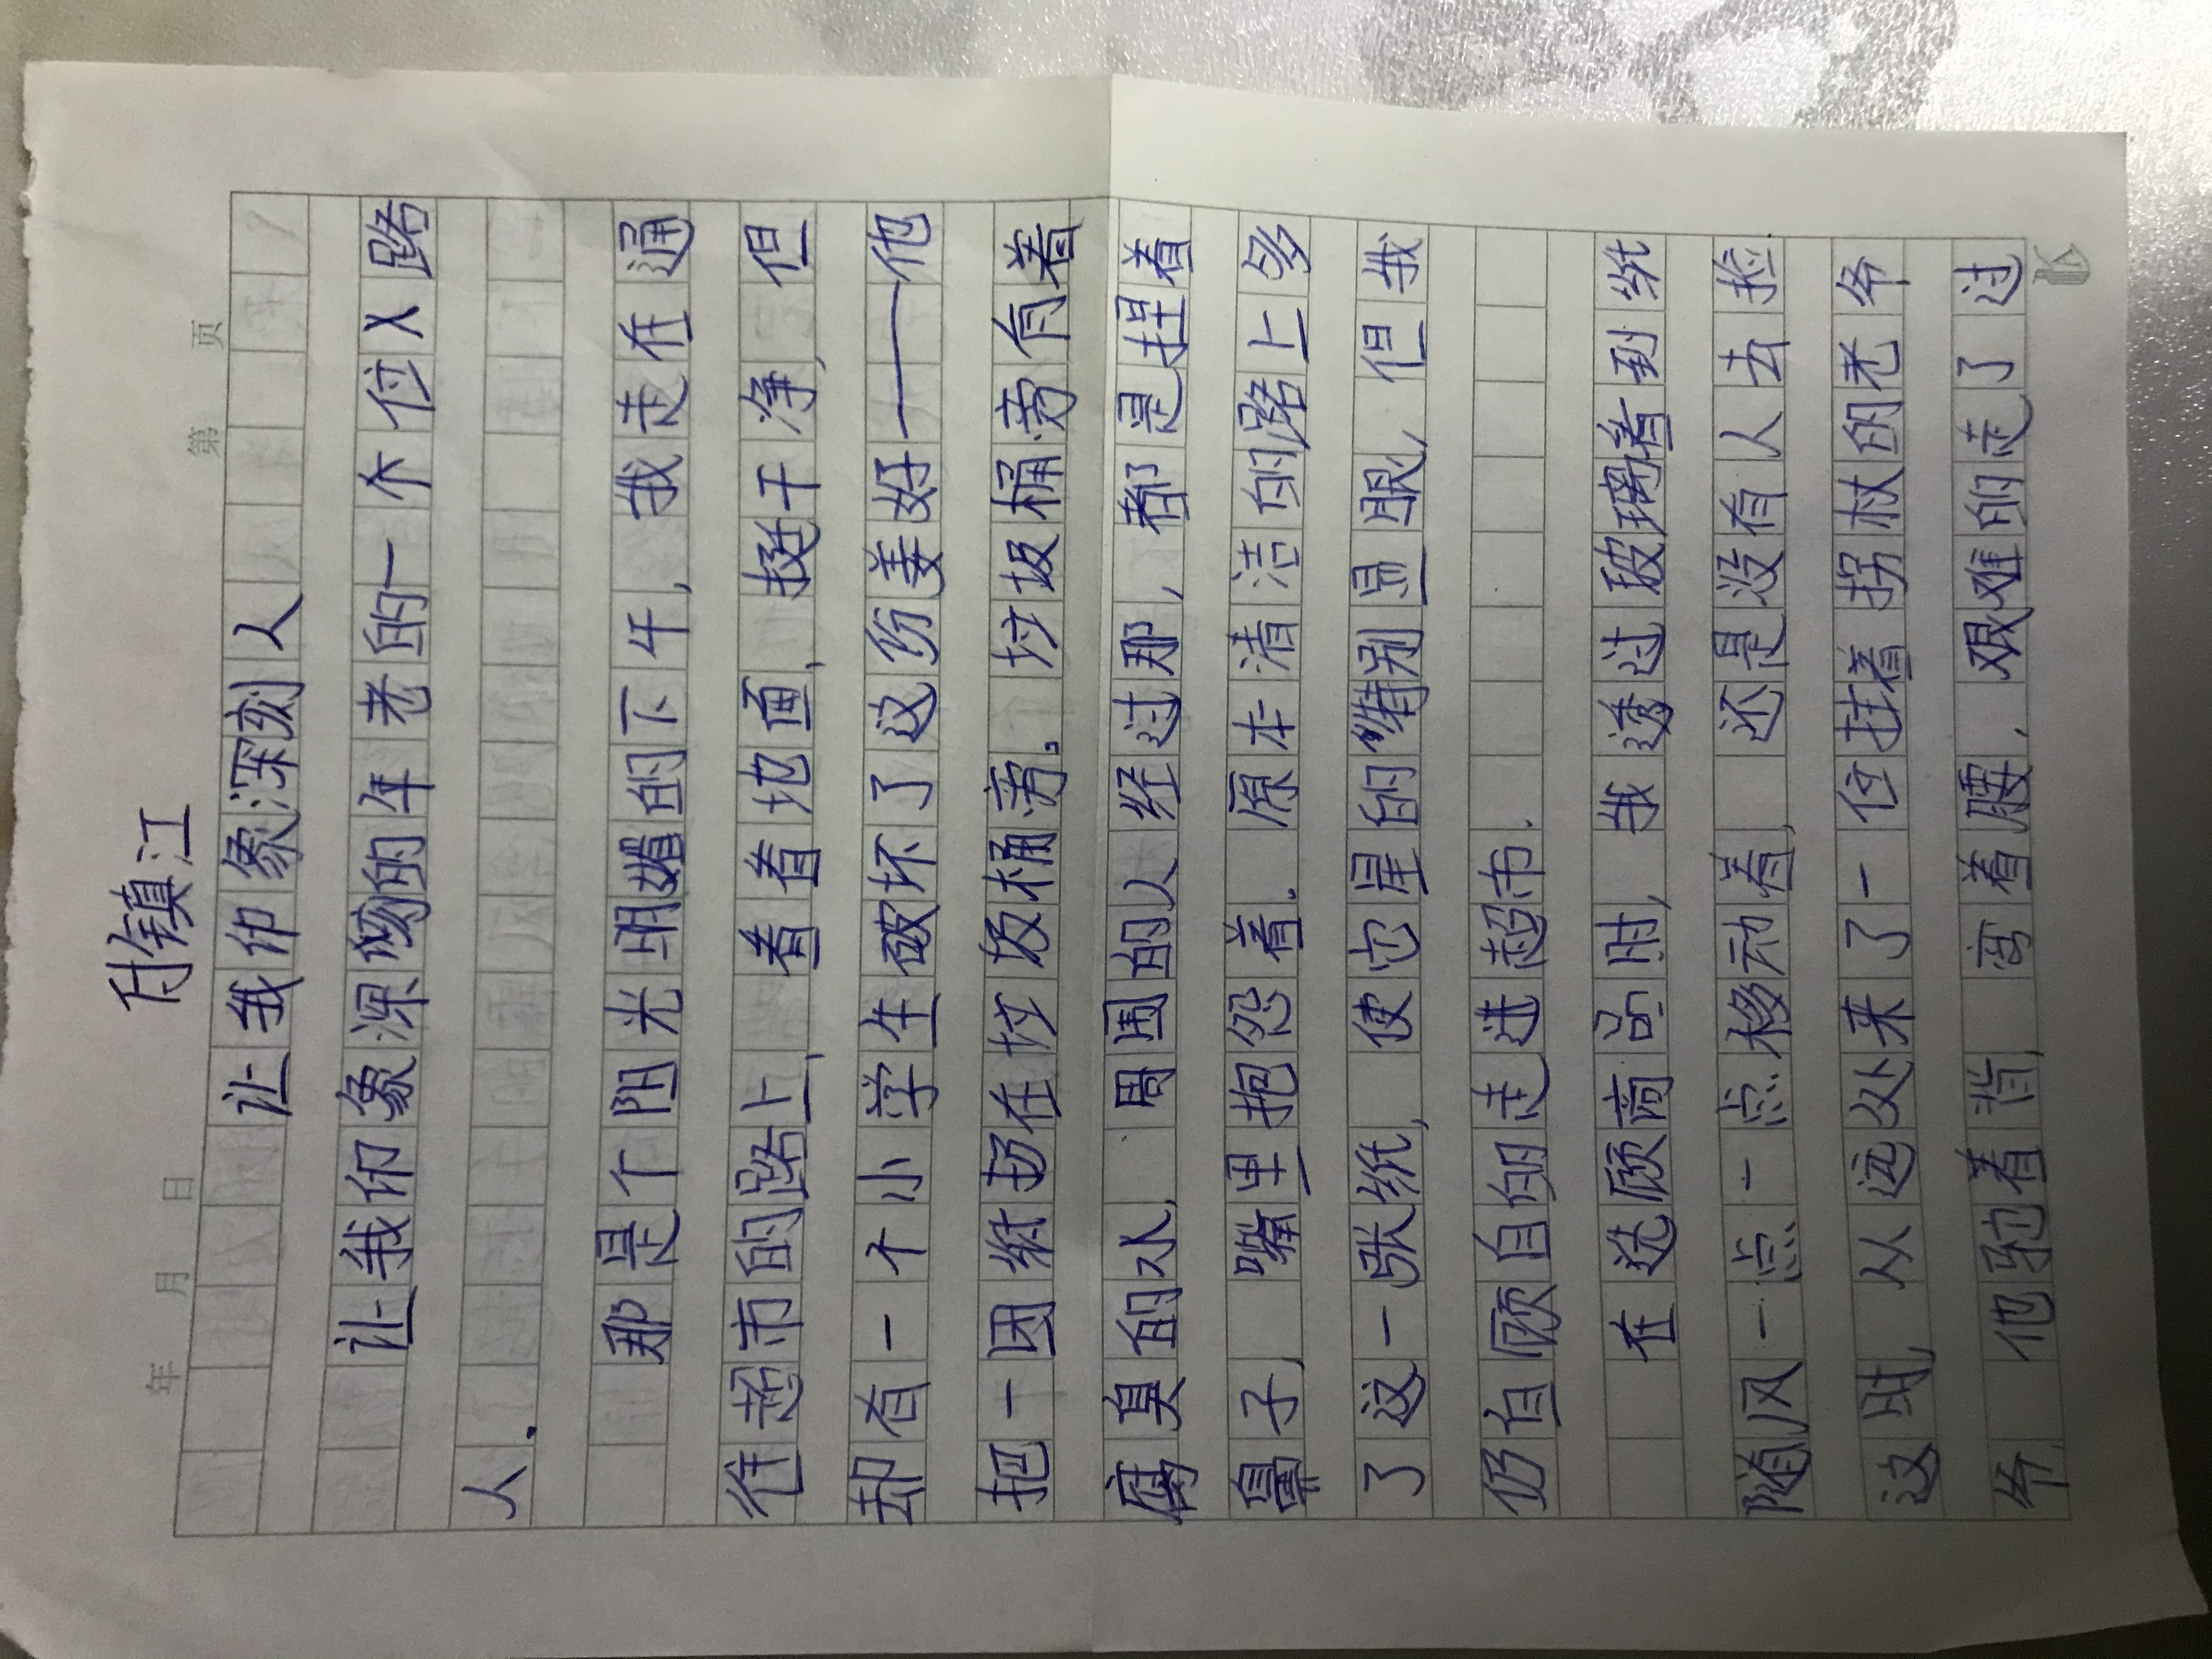 付镇江
第 页
年 月 日
让我印象深刻人
让我印象深刻的年老的一个位人路
人.
那是个阳光明媚的下午,我走在通
往超市的路上,看着地面,挺干净,但
却有一个小学生破坏了这份美好——他
把一团纸扔在垃圾桶旁。垃圾桶旁有着
腐臭的水,周围的人经过那,都是捏着
鼻子,嘴里抱怨着。原本清洁的路上多
了这一张纸,使它星的特别显眼,但我
仍自顾自的走进超市.
在选顾商品时,我透过玻璃看到纸
随风一点一点移动着,还是没有人去捡.
这时,从远处来了一位拄着拐杖的老爷
爷,他驼着背,弯着腰,艰难的走了过